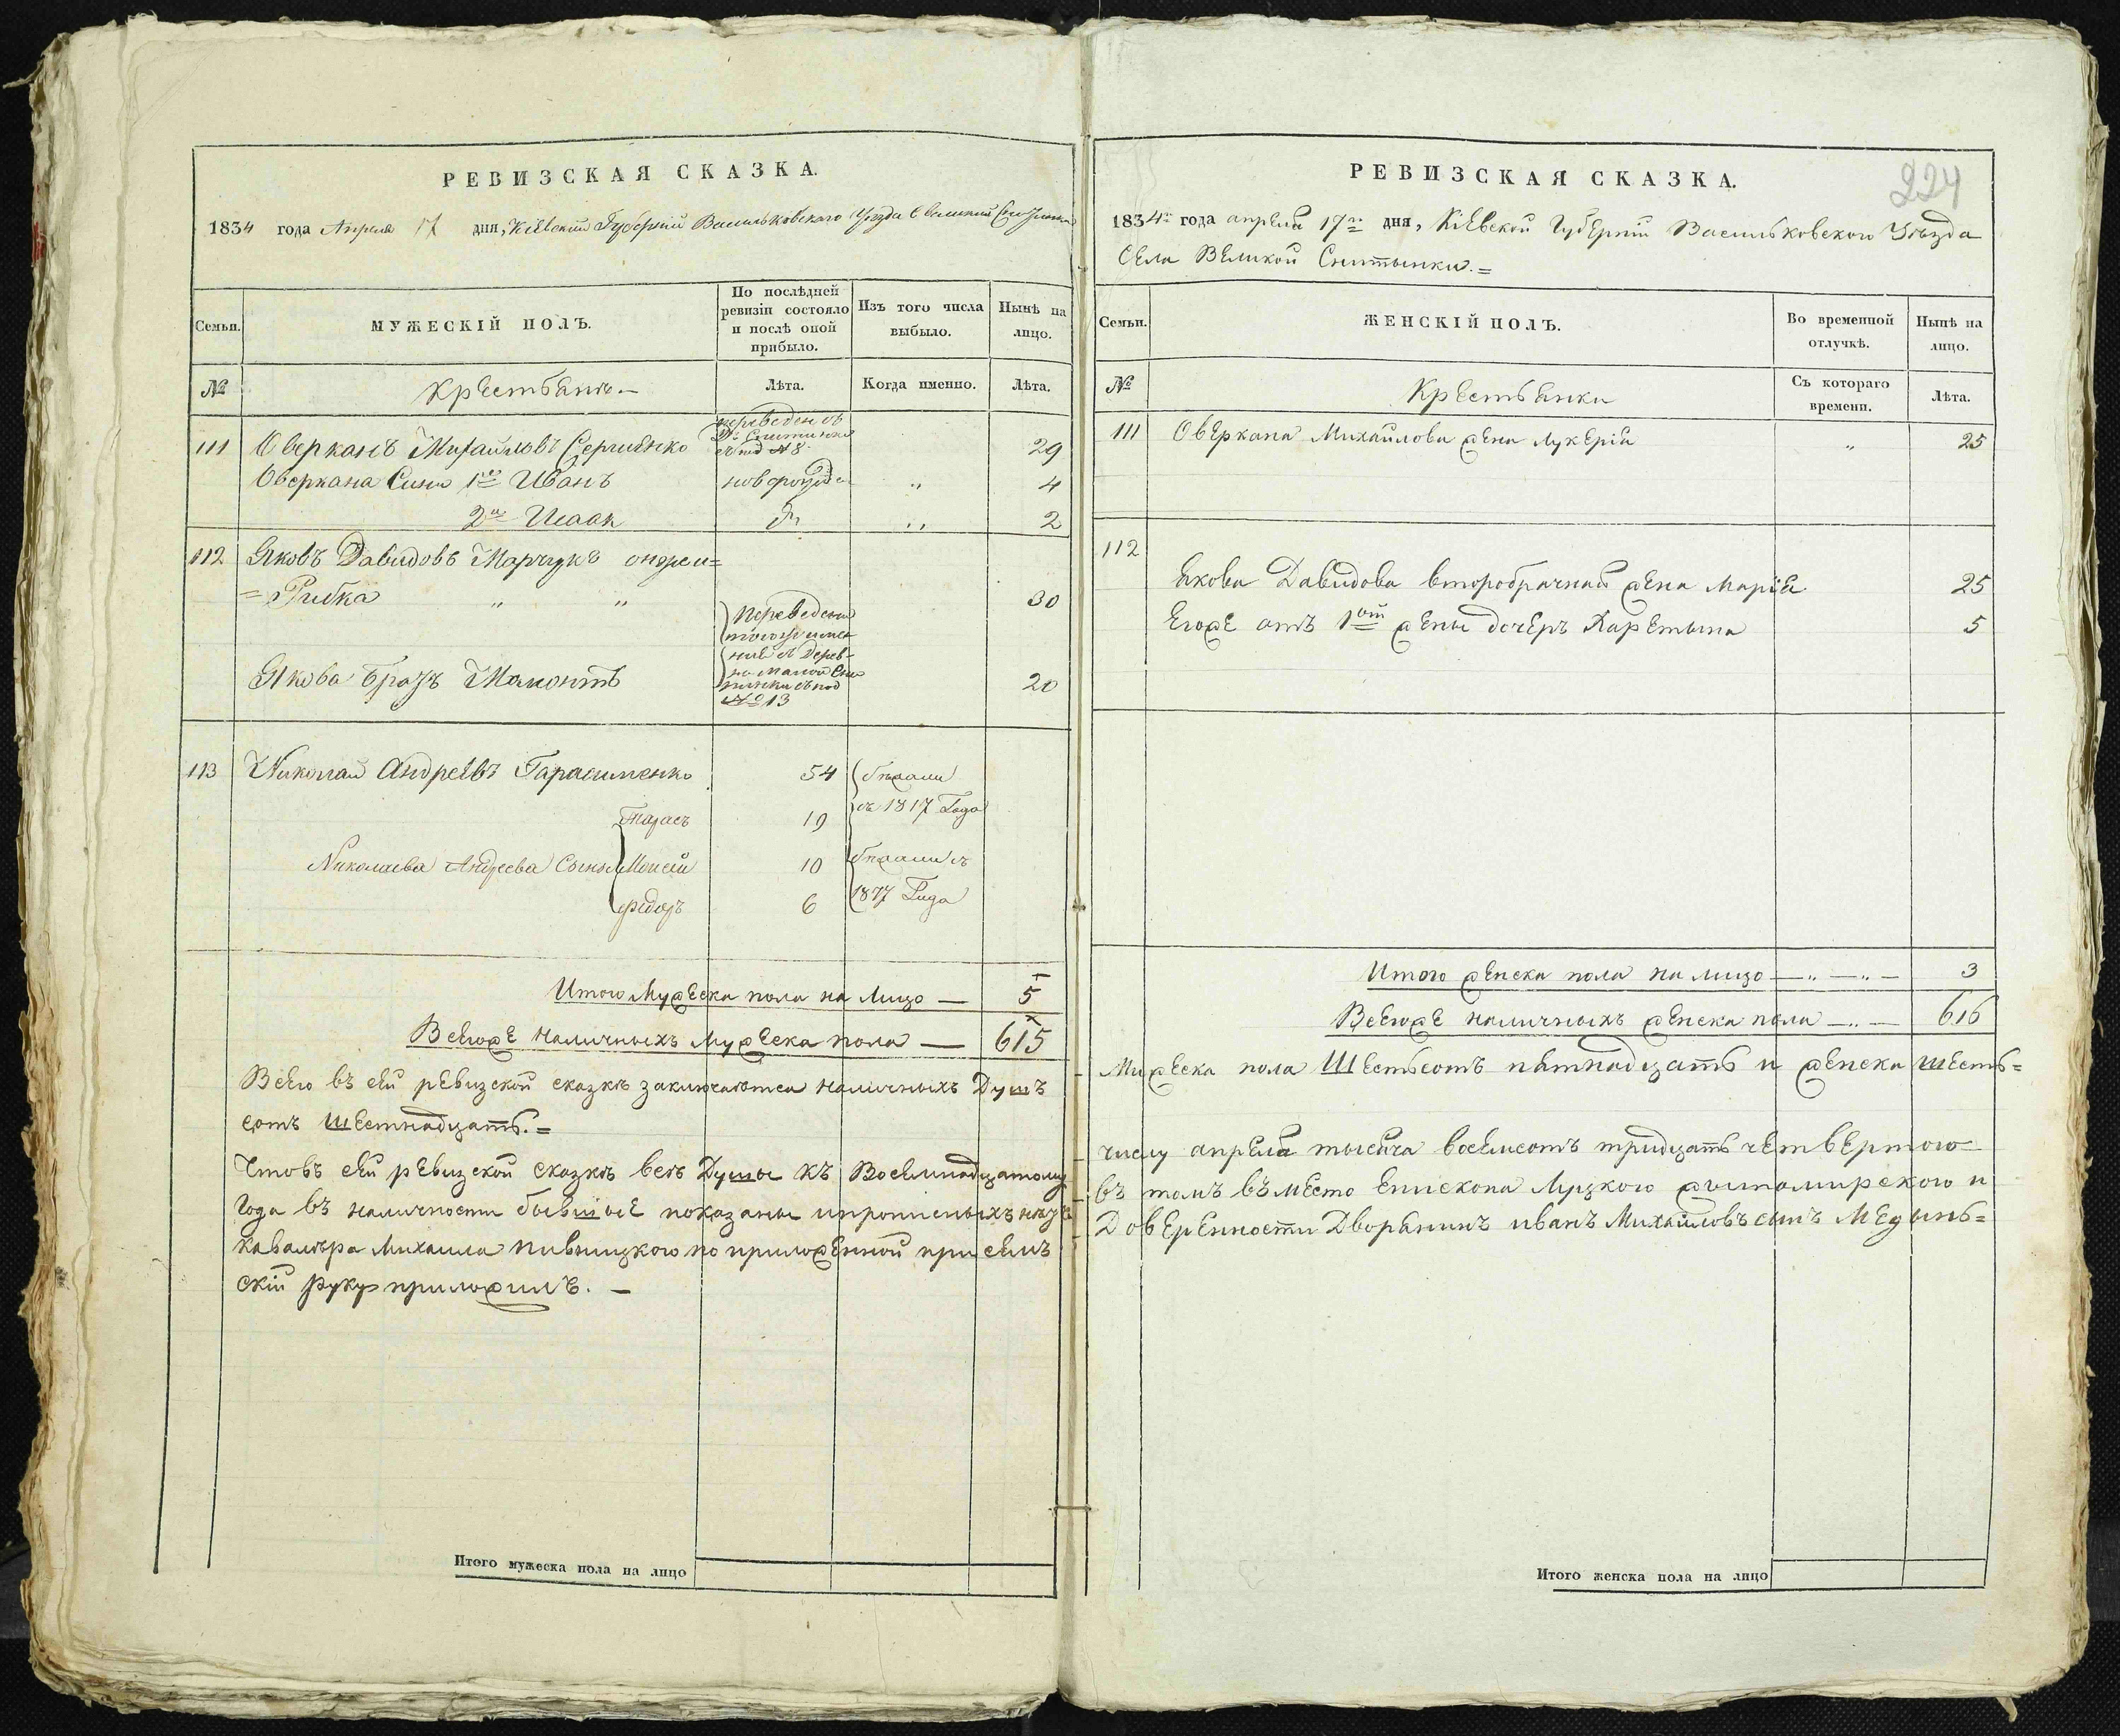 РЕВИЗСКАЯ СКАЗКА.
1834 года Апреля 17 дня, Кіевскій Губерніи Васильковскаго Уезда С Великий Снитынки
Семьи.
МУЖЕСКІЙ ПОЛЪ.
По послѣдней ревизіи состояло и послѣ оной прибыло.
Изъ того числа выбыло.
Нынѣ на лицо.
№
Крестьянъ.—
Лѣта.
Когда именно.
Лѣта.
111 Оверканъ Михайловъ Сергиенко переведен съ Снитинки съ под № 8 29
Оверкана Сини 1й Иванъ новорожден „ 4
2й Исаак „ 2
112 Яковъ Давидовъ Марчукъ онжеи=
=Рибка „ „ 30
Якова Братъ Маконтъ Переведени тогожъ име ния съ Дерев ни Малой Сни тинки съ под № 13 20
113 Николай Андреевъ Гарасименко 54 бежали
Тарасъ 19 съ 1817 Года
Николаева Андреева Сыны Моисей 10 бежали съ
Федоръ 6 1817 Года
Итого Мужеска пола на Лицо — 5
Всегоже наличныхъ Мужеска пола — 615
Всего въ сей ревизской сказкѣ заключаются наличныхъ Душъ
сотъ Шестнадцать.=
Чтовъ сей ревизской сказкѣ всѣ Души къ Восемнадцатому
Года въ наличности бывшые показаны ипрописныхъ
кавалѣра Михаила Пивницкого по приложенной при семъ
скій Руку приложилъ. —
Итого мужеска пола на лицо
РЕВИЗСКАЯ СКАЗКА.
224
1834го года апреля 17го дня, Кіевской Губерніи Васильковского Уѣзда
Села Великой Снитынки.=
Семьи.
ЖЕНСКІЙ ПОЛЪ.
Во временной отлучкѣ.
Нынѣ на лицо.
№
Крестьянки
Съ котораго времени.
Лѣта.
111 Оверкана Михайлова жена Лукерія „ 25
112
Якова Давидова второбрачная жена Марія 25
Егоже отъ 1ой жены дочеръ Харетына 5
Итого женска пола на лицо — „ — „ — 3
Всегоже наличныхъ женска пола — „ — 616
Мужеска пола Шестьсотъ пятнадцать и женска шесть=
числу апреля тысяча восемсотъ тридцать четвертого
въ томъ въместо Епископа Луцкого житомирского и
Доверенности Дворянинъ иванъ Михайловъ сынъ Медынь=
Итого женска пола на лицо